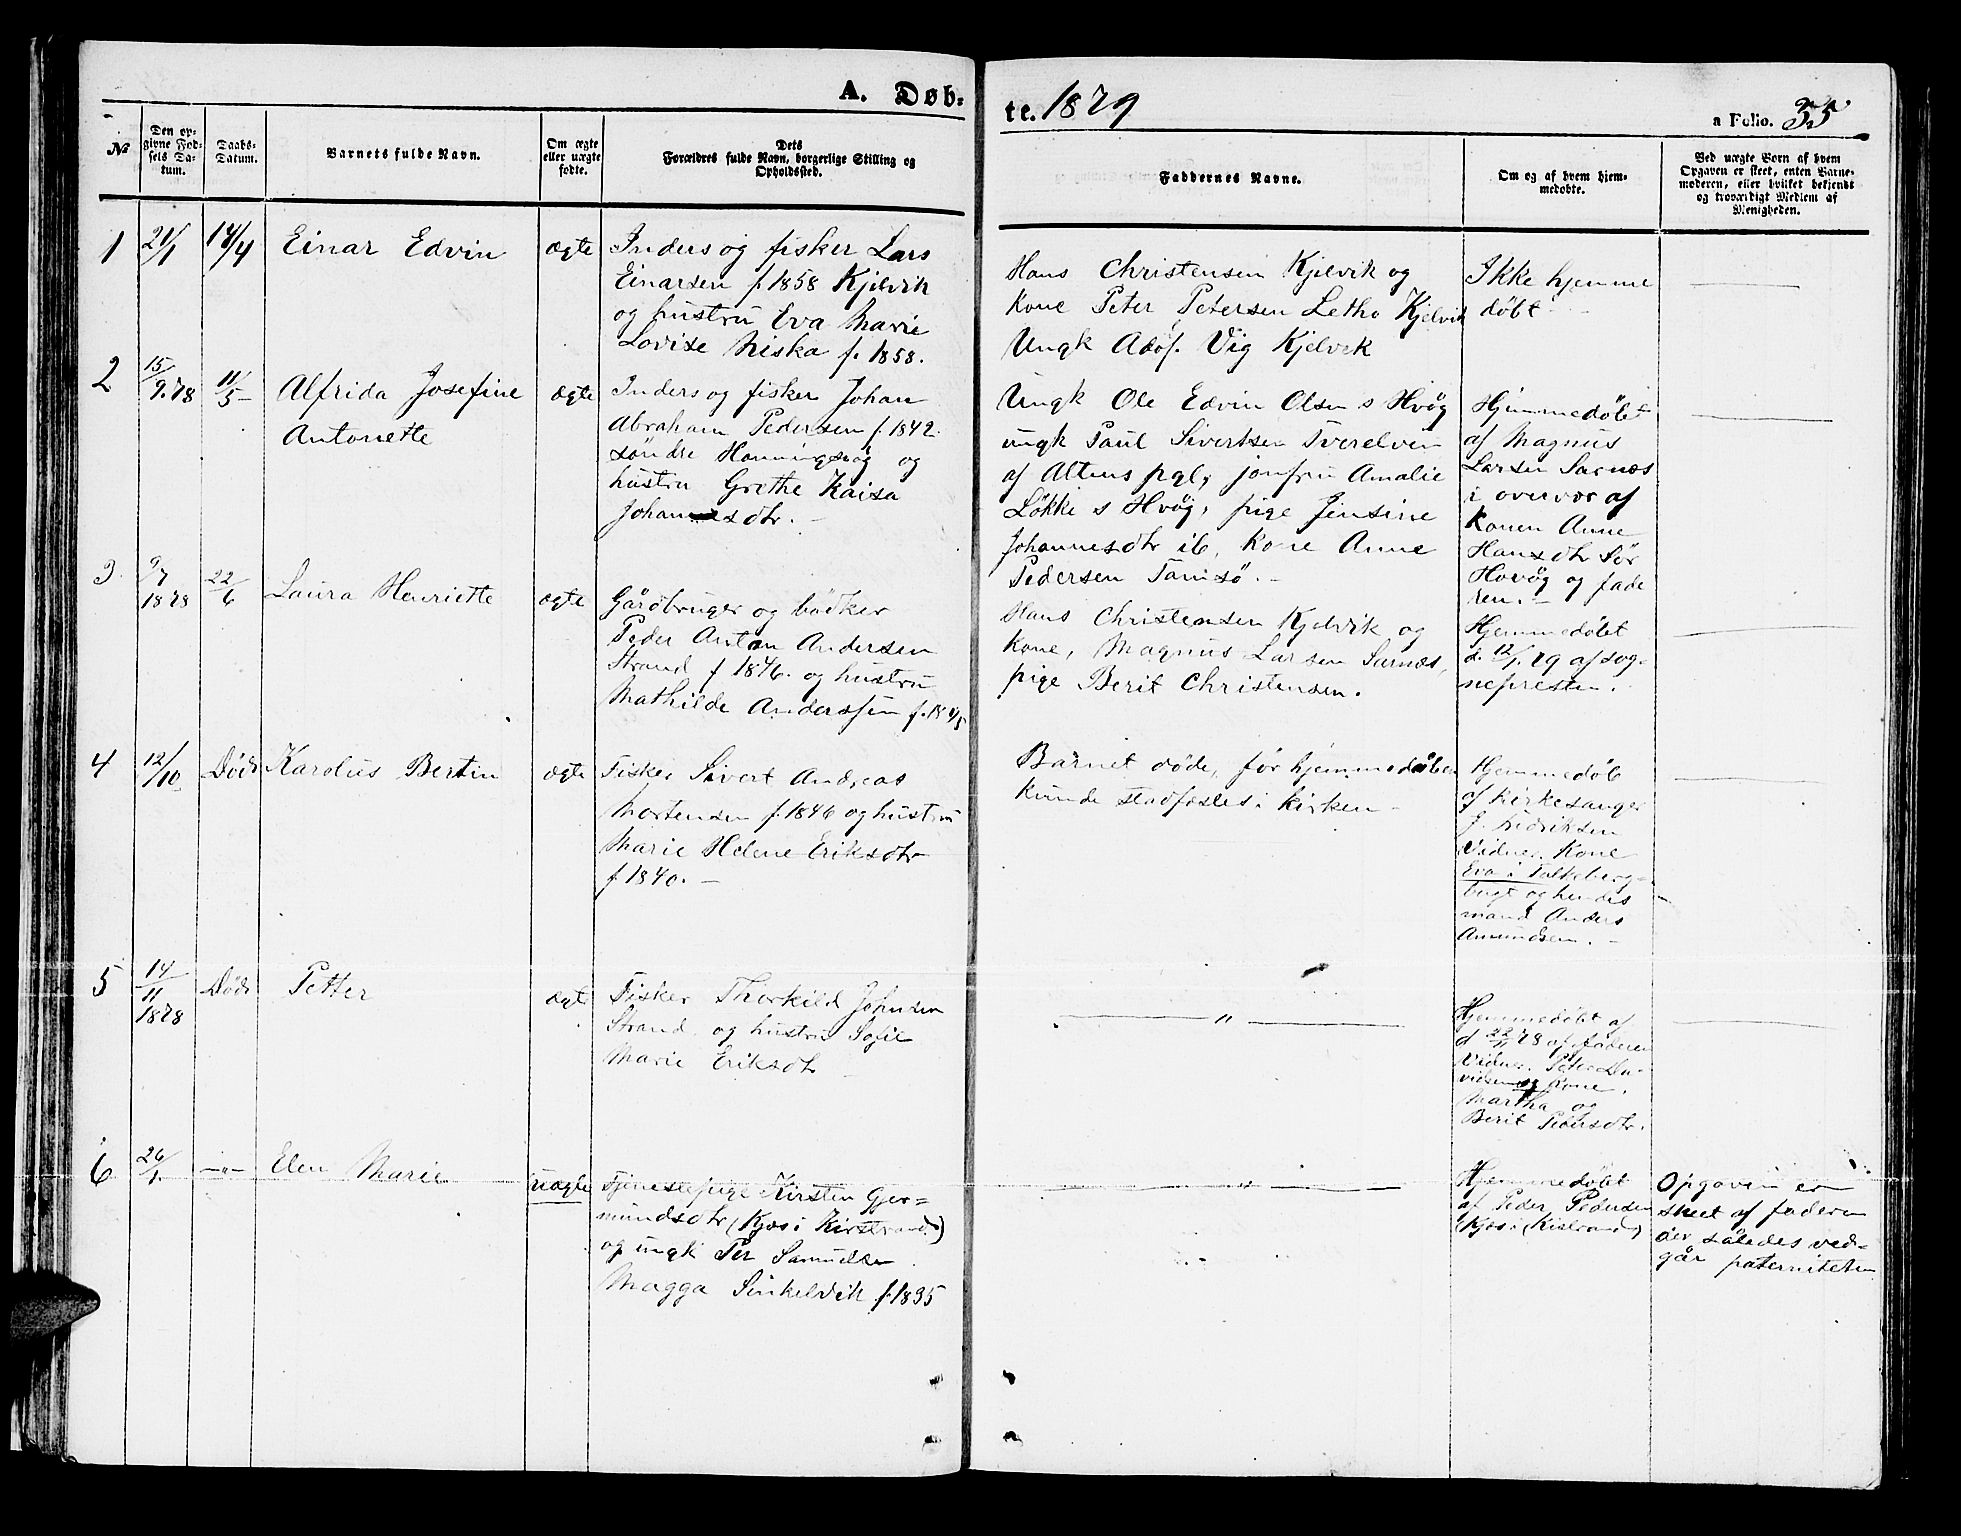 A. Døb-
te. 1879
a Folio. 35
№
Den op-
givne Fød-
sels Da-
tum.
Daabs-
Datum.
Barnets fulde Navn.
Om ægte
eller uægte
fødte.
Dets
Forældres fulde Navn, borgerlige Stilling og
Opholdssted.
Faddernes Navne.
Om og af hvem hjem-
medøbte.
Ved uægte Børn af hvem
Opgaven er skeet, enten Barne-
moderen, eller hvilket bekjendt
og troværdigt Medlem af
Menigheden.
1
21/1
14/4
Einar Edvin
ægte
Inders og fisker Lars
Einarsen f. 1858 Kjelvik
og hustru Eva Marie
Lovise Niska f. 1858.
Hans Christensen Kjelvik og
kone Peter Petersen Letho Kjelvik
Ungk Adof. Vig Kjelvik
Ikke hjemme
døbt
2
15/9.78
11/5
Alfrida Josefine
Antonette
ægte
Inders og fisker Johan
Abraham Pedersen f. 1842.
søndre Honningsvåg og
hustru Grethe Kaisa
Johannesdtr.
Ungk Ole Edvin Olsen s Hvåg
ungk Paul Sivertsen Tverelven
af Altens pgl, jonfru Amalie
Løkke s Hvåg, pige Jensine
Johannesdtr ib, kone Anne
Pedersen Tamsø.
Hjemmedøbt
af Magnus
Larsen Sarnes
i overvær af
konen Anne
Hansdtr Sør
Hovåg og fade
ren.
3
9/7
1878
22/6
Laura Henriette
ægte
Gårdbruger og bødker
Peder Anton Andersen
Strand f 1846. og hustru
Mathilde Anderssen
Hans Christensen Kjelvik og
kone, Magnus Larsen Sarnes,
pige Berit Christensen.
Hjemmedøbt
d. 12/1.79 af sog-
nepresten.
4
12/10
Død
Karolus Bertin
ægte
Fisker Sivert Andreas
Mortensen f. 1846 og hustru
Marie Helene Eriksdtr
f. 1840.
Barnet døde, før hjemmedåben
kunde stadfæstes i kirken
Hjemmedøb
af Kirkesanger
J. Fredriksen
Vidner. Kone
Eva i Falkeberg-
bugt og hendes
mand Anders
Amundsen.
5
14/11
1878
Død
Petter
ægte
Fisker Thorkild Johnsen
Strand og hustru Sofie
Marie Eriksdtr
"
Hjemmedøbt af
d 22/11 78 af faderen
Vidner. Peter Da-
vidsen og kone.
Martha og
Berit Pedersdtr.
6
26/1.
"
Elen Marie
uægte
Tjenestepige Kirsten Gjer-
mundsdtr (Kjæs i Kirstrand)
og ungk Per Samuelsen
Magga Sinkelvik f. 1835
"
Hjemmedøbt
af Peder Pedersen
(Kjæs i Kistrand)
Opgaven er
skeet af faderen
der således ved-
går paterniteten